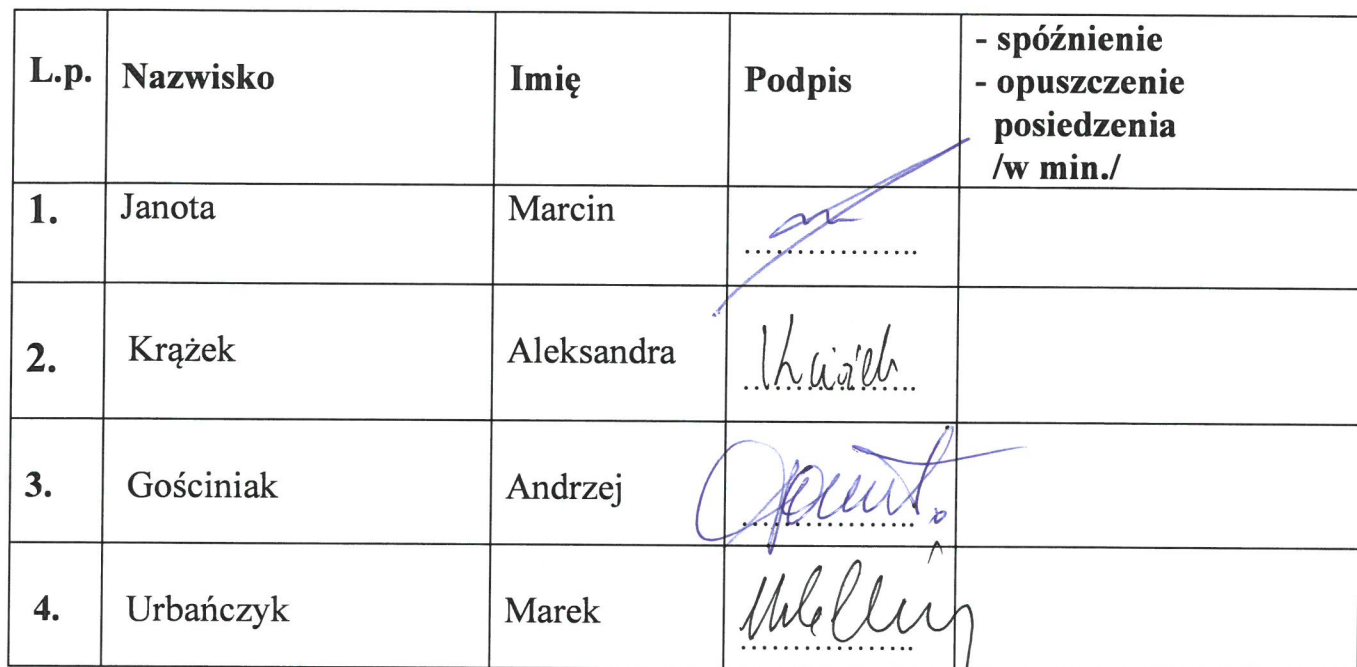 L.p. Nazwisko Imię Podpis - spóźnienie
- opuszczenie
posiedzenia
/w min./
1. Janota Marcin
.................
2. Krążek Aleksandra
.................
3. Gościniak Andrzej
.................
4. Urbańczyk Marek
.................